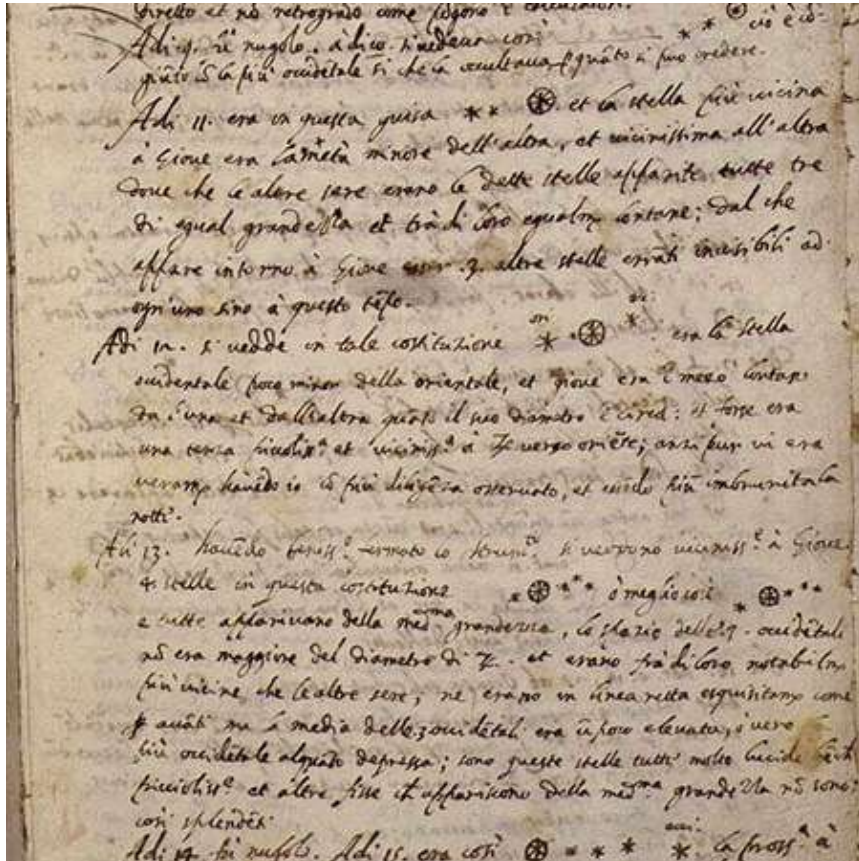 diretto et nō retrogrado come pōgono i
Adi 9. fù nugolo. à dì 10. si vedeva così * * ⊛ ciò è cō-
giūto cō la più occidētale si che la occultava p quāto si può credere.
Adi 11. era in questa guisa * * ⊛ et la stella più vicina
à Giove era la metà minore dell'altra, et vicinissima all'altra
dove che le altre sere erano le dette stelle apparite tutte tre
di egual grandezza et trà di loro egualm. lontane; dal che
appare intorno à Giove esser .3. altre stelle errāti invisibili ad
ogn'uno sino à questo tēpo.
Adi 12. si vedde in tale costituzione ori * . ⊛ * occ: era la stella
occidentale poco minor della orientale, et giove era ī mezo lontano
da l'una et dall'altra quāto il suo diametro ī circa: et forse era
una terza piccoliss.ᵃ et viciniss.ᵃ à ♃ verso oriēte; anzi pur vi era
veramᵉ havēdo io cō più diligēza osservato, et essēdo più imbrunita la
notte.
Adi 13. havēdo beniss.º fermato lo strum.º si veddono viciniss.ᵉ à Giove
4. stelle in questa costituzione * ⊛ * * * ò meglio così * ⊛ * * *
e tutte apparivano della medᵐᵃ grandezza, lo spazio delle .3. occidētali
nō era maggiore del diametro di ♃. et erano frà di loro notabilmᵉ
più vicine che le altre sere; ne erano in linea retta esquisitamᵉ come
p avāti ma la media delle .3. occidētali era ū poco elevata, ò vero la
più occidētale alquāto depressa; sono queste stelle tutte molto lucide bēche
piccioliss.ᵉ et altre fisse ch' appariscono della medᵐᵃ grandezza nō sono
così splendēti
Adi 14. fù nugolo. Adi 15. era così ⊛ * * * * occi: la pross.ᵃ à